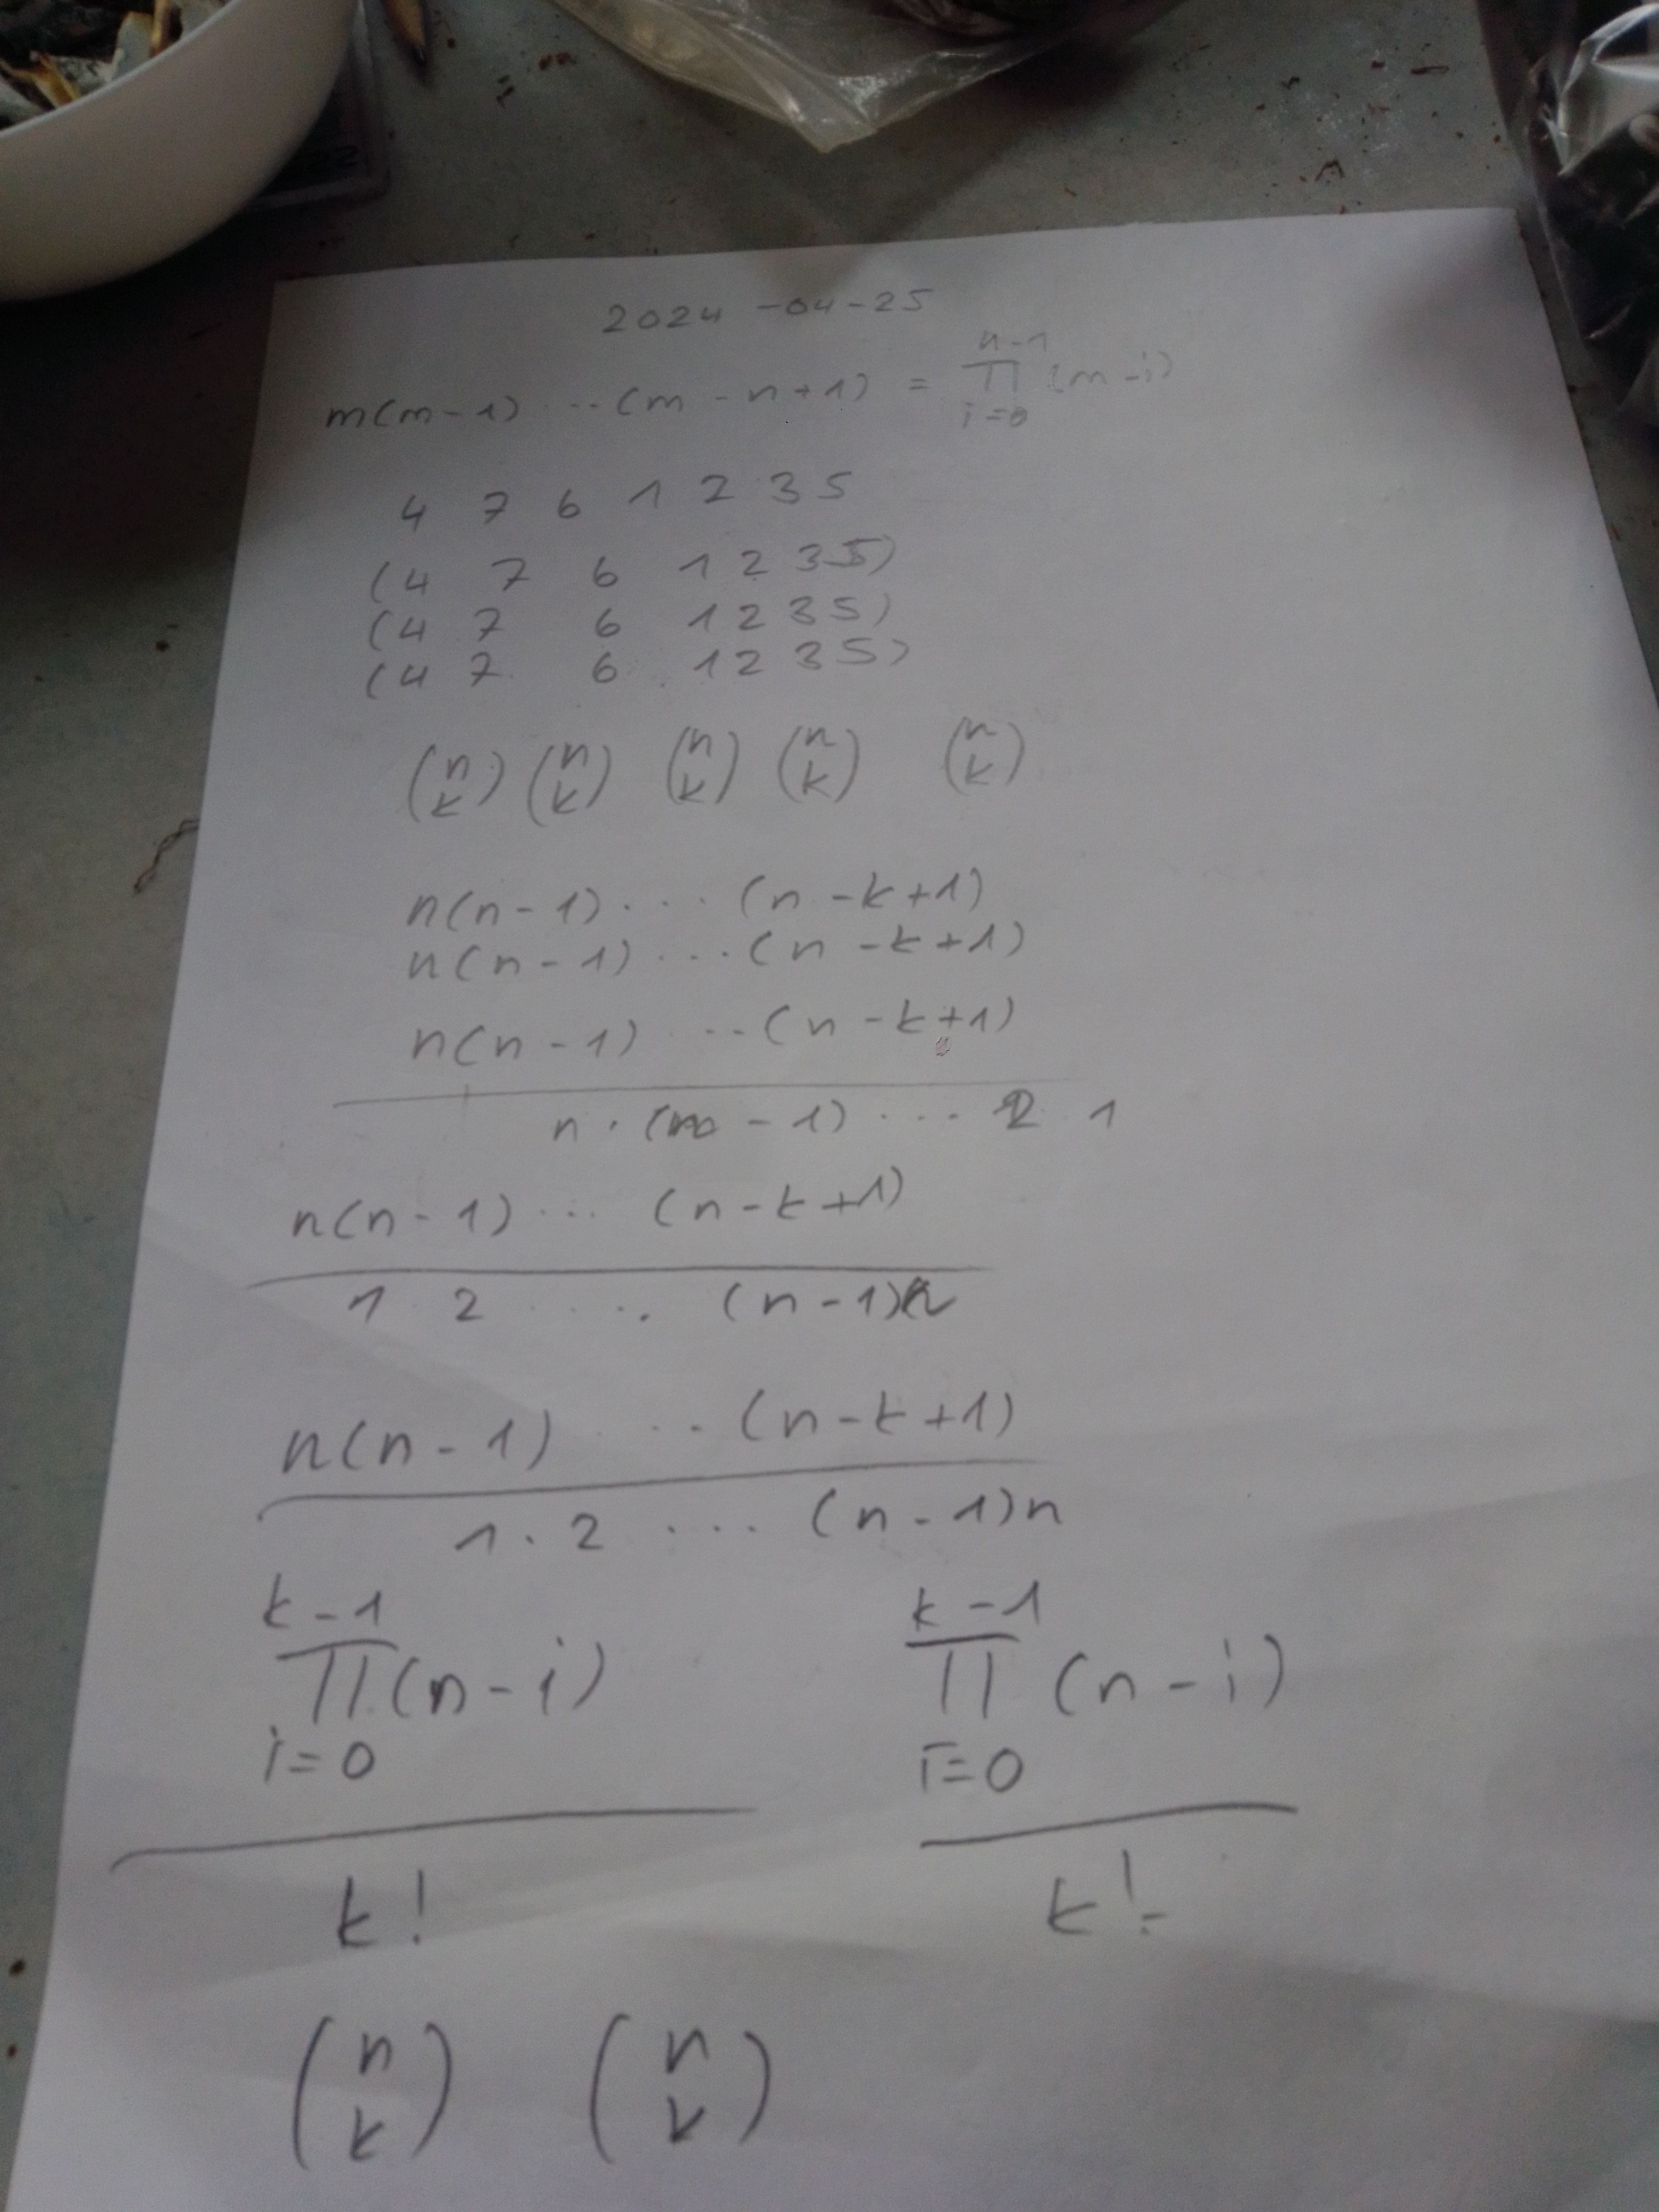 2024-04-25
m(m-1)...(m-n+1) = ∏_{i=0}^{n-1}(m-i)
4 7 6 1 2 3 5
(4 7 6 1 2 3 5)
(4 7 6 1 2 3 5)
(4 7 6 1 2 3 5)
(n k) (n k) (n k) (n k) (n k)
n(n-1)...(n-k+1)
n(n-1)...(n-k+1)
n(n-1)...(n-k+1)
n·( -1)... 2 1
n(n-1)...(n-k+1)
1 2 .... (n-1)
n(n-1)...(n-k+1)
1·2 ... (n-1)n
k-1 k-1
∏(n-i) ∏(n-i)
i=0 i=0
k! k!
(n k) (n k)